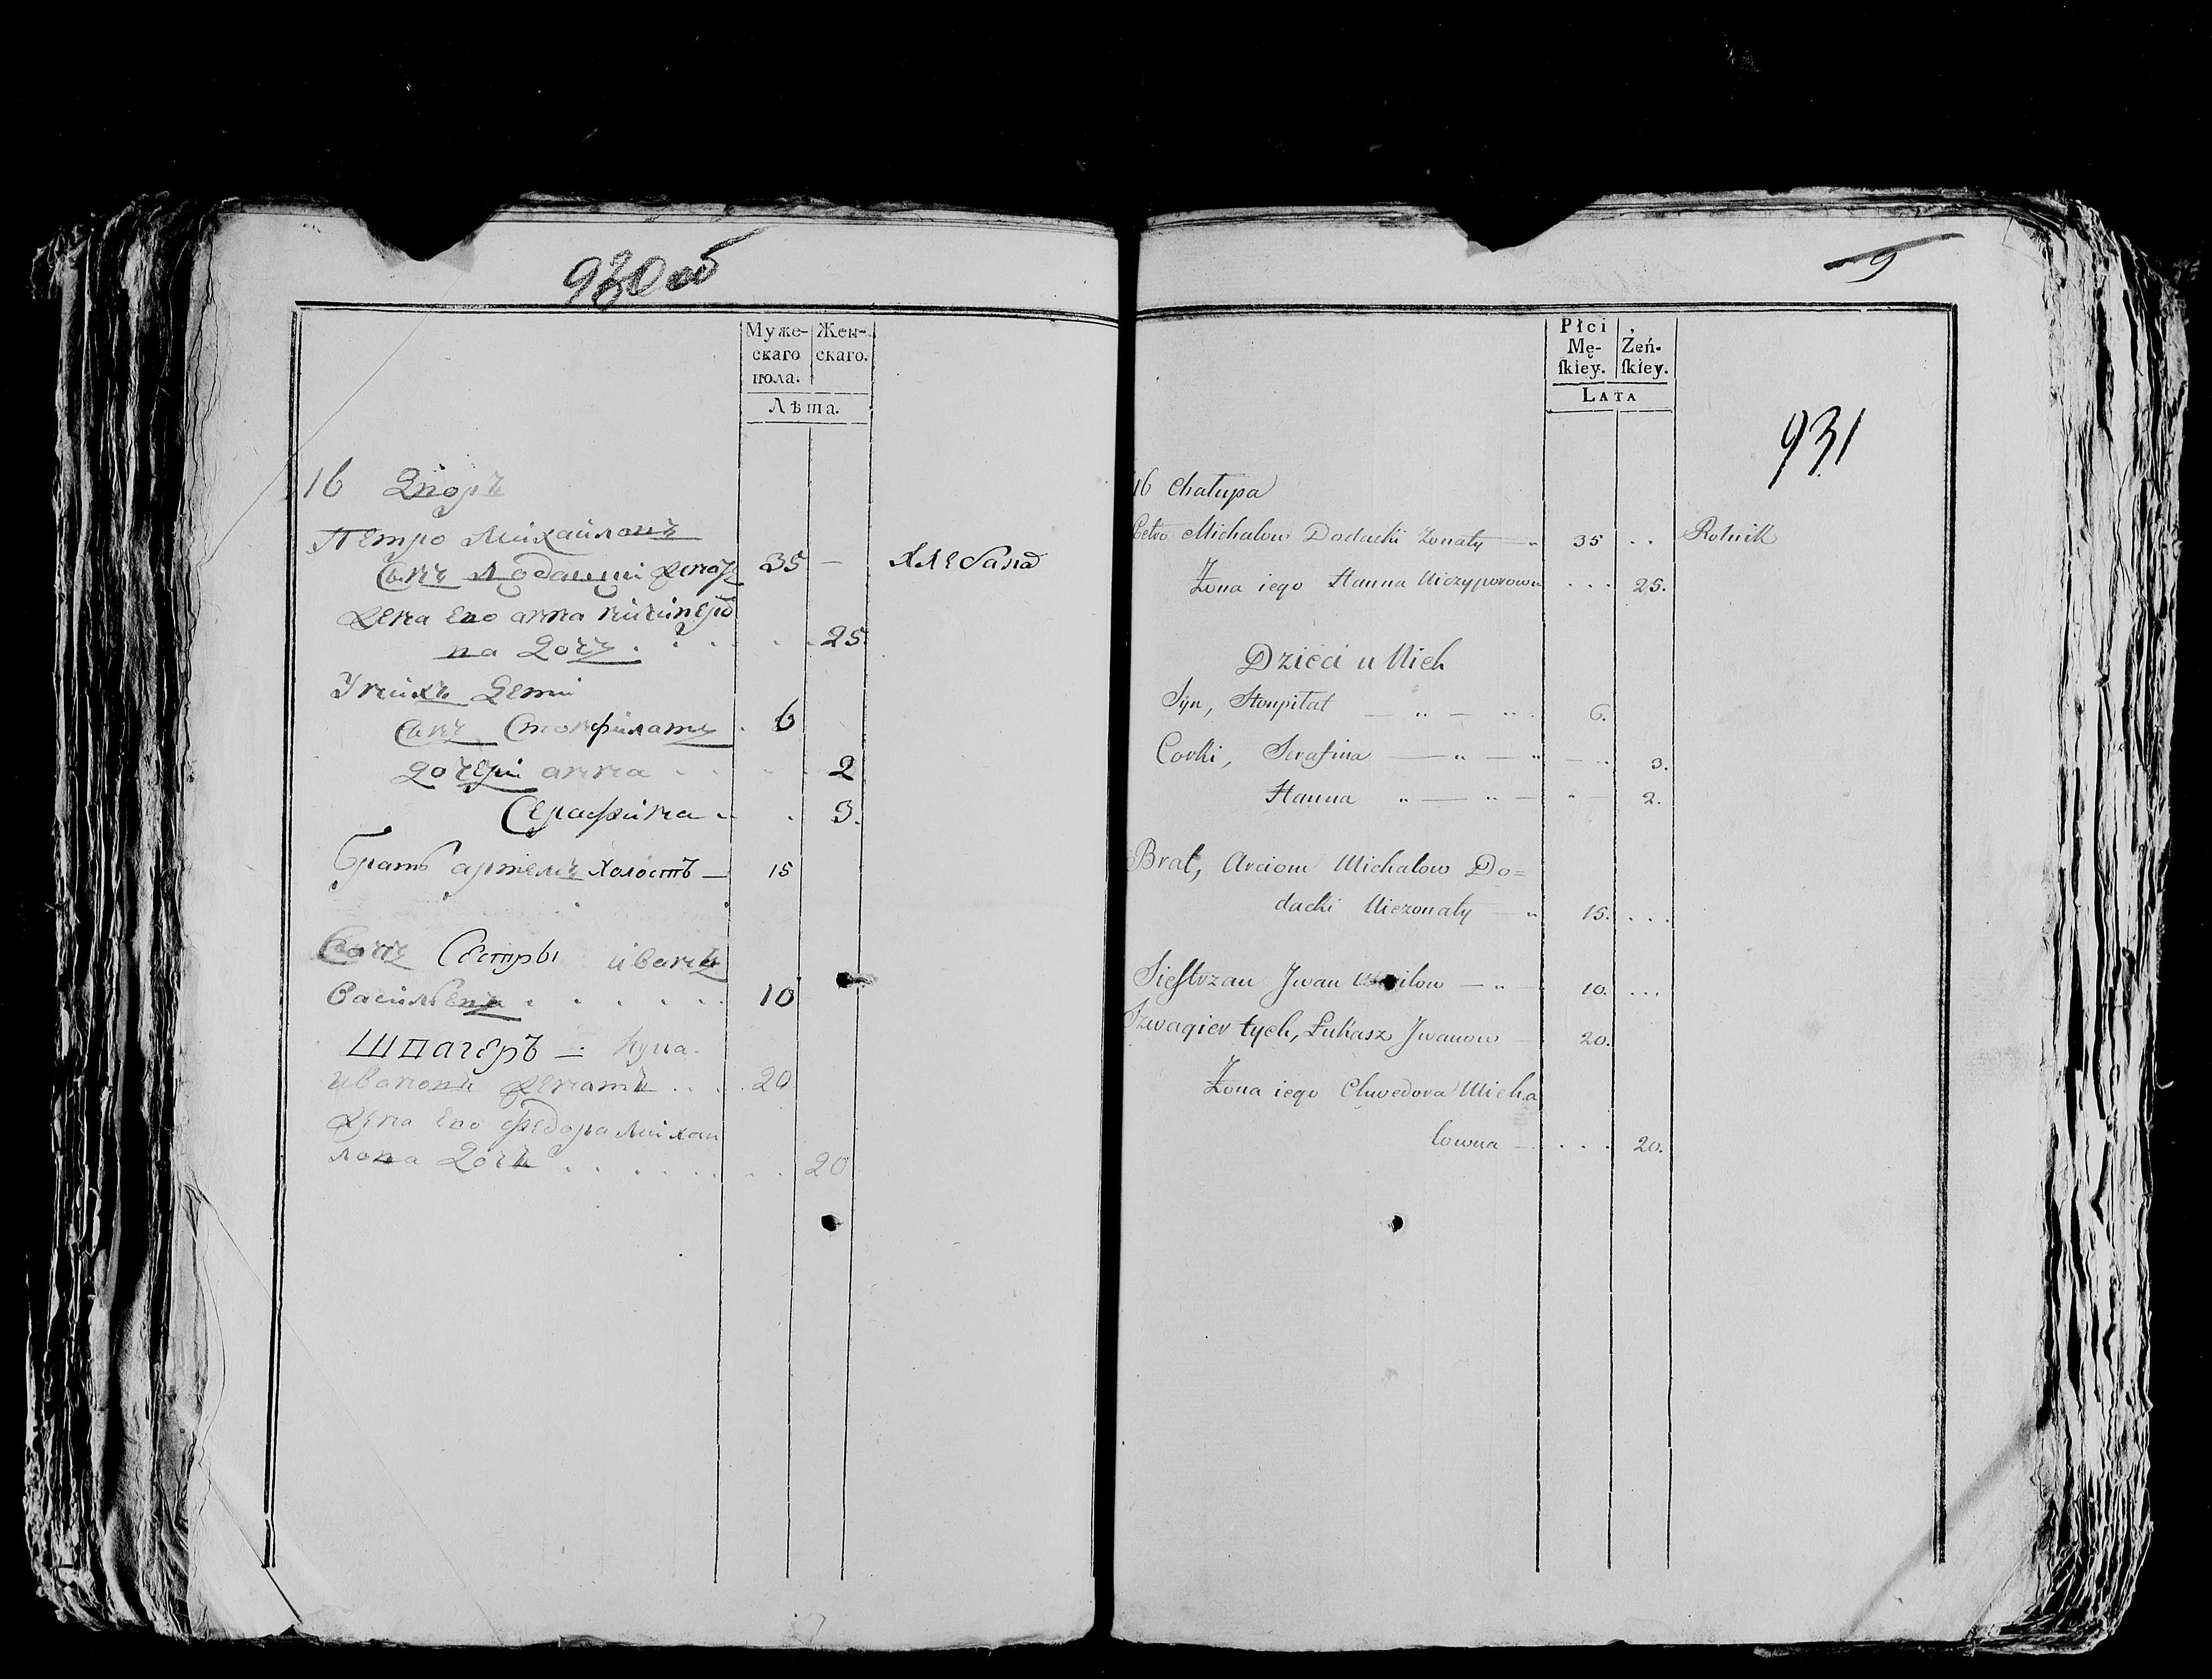 930 об
Муже-
скаго
пола.
Жен-
скаго.
Лѣта.
16 Дворъ
Петро Михаиловъ
Сынъ женатъ 35 — хлебопа
жена ево анна ничипоро
ва дочь . . . . . 25
У нихъ Дети
Сынъ . 6
дочери анна . . . . 2
Серафина . . 3.
братъ артемъ холостъ — 15
Сынъ Сестры иванъ
Васильевъ . . . . . 10
Швагеръ —
ивановъ женатъ . . . 20
жена ево федора михаи
лова дочь . . . . . . . . 20
9
Płci
Mę-
ſkiey.
Żeń-
ſkiey.
LATA
931
16 Chałupa
Petro Michałow Dodacki żonaty — „ 35 . . Rolnik
Żona iego Hanna Niczyporowna . . . 25.
Dzieci u Nich
Syn, Stoupiłat — „ — „ . 6.
Corki, Serafina — „ — „ — . . 3.
Hanna „ — „ — „ — 2.
Brat, Arciom Michałow Do=
dacki Niezonaty — „ 15. . . .
Siestrzan Jwan — „ — 10. . . .
Szwagier tych, Łukasz Jwanow — 20.
Żona iego Chwedora Micha
łowna — . . . 20.